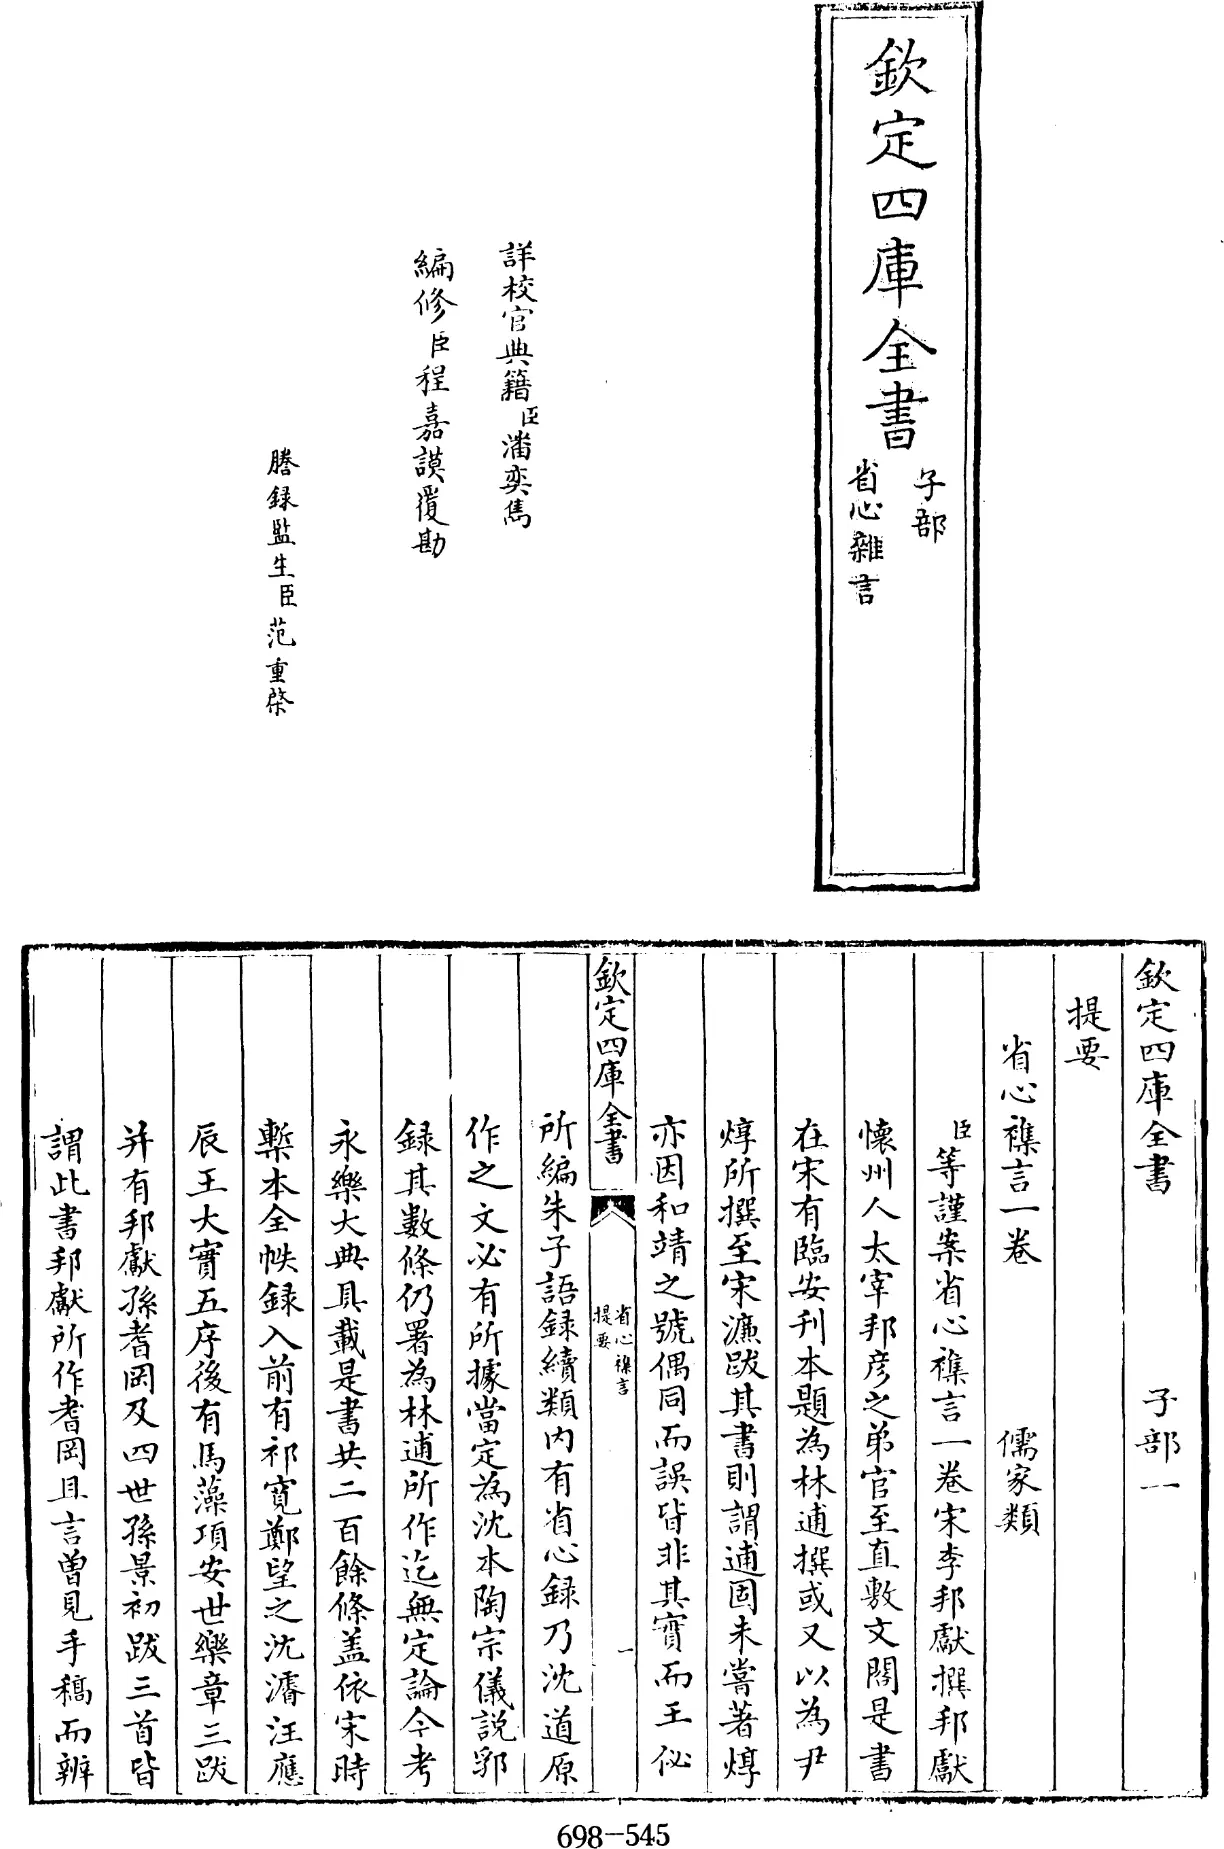 欽定四庫全書
子部
省心雜言
詳校官典籍臣潘奕雋
編修臣程嘉謨覆勘
謄録監生臣范重棨
欽定四庫全書
子部一
提要
省心襍言一卷
儒家類
臣等謹案省心襍言一卷宋李邦獻撰邦獻
懐州人太宰邦彦之弟官至直敷文閣是書
在宋有臨安刊本題為林逋撰或又以為尹
焞所撰至宋濂跋其書則謂逋固未嘗著焞
亦因和靖之號偶同而誤皆非其實而王佖
欽定四庫全書
省心襍言
提要
一
所編朱子語録續類内有省心録乃沈道原
作之文必有所據當定為沈本陶宗儀説郛
録其數條仍署為林逋所作迄無定論今考
永樂大典具載是書共二百餘條盖依宋時
槧本全帙録入前有祁寛鄭望之沈濬汪應
辰王大實五序後有馬藻項安世樂章三跋
并有邦獻孫耆岡及四世孫景初跋三首皆
謂此書邦獻所作耆岡且言曽見手稿而辨
698-545